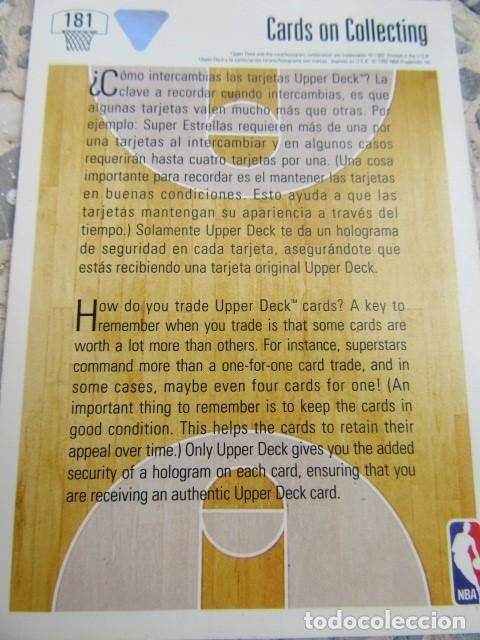 181
Cards on Collecting
Upper Deck and the card/hologram combination are trademarks. © 1992. Printed in the U.S.A.
Upper Deck y la combinación tarjeta/holograma son marcas. Impreso en U.S.A. © 1992 NBA Properties, Inc.
¿Cómo intercambias las tarjetas Upper Deck™? La
clave a recordar cuando intercambias, es que
algunas tarjetas valen mucho más que otras. Por
ejemplo: Super Estrellas requieren más de una por
una tarjetas al intercambiar y en algunos casos
requerirán hasta cuatro tarjetas por una. (Una cosa
importante para recordar es el mantener las tarjetas
en buenas condiciones. Esto ayuda a que las
tarjetas mantengan su apariencia a través del
tiempo.) Solamente Upper Deck te da un holograma
de seguridad en cada tarjeta, asegurándote que
estás recibiendo una tarjeta original Upper Deck.
How do you trade Upper Deck™ cards? A key to
remember when you trade is that some cards are
worth a lot more than others. For instance, superstars
command more than a one-for-one card trade, and in
some cases, maybe even four cards for one! (An
important thing to remember is to keep the cards in
good condition. This helps the cards to retain their
appeal over time.) Only Upper Deck gives you the added
security of a hologram on each card, ensuring that you
are receiving an authentic Upper Deck card.
NBA
todocoleccion